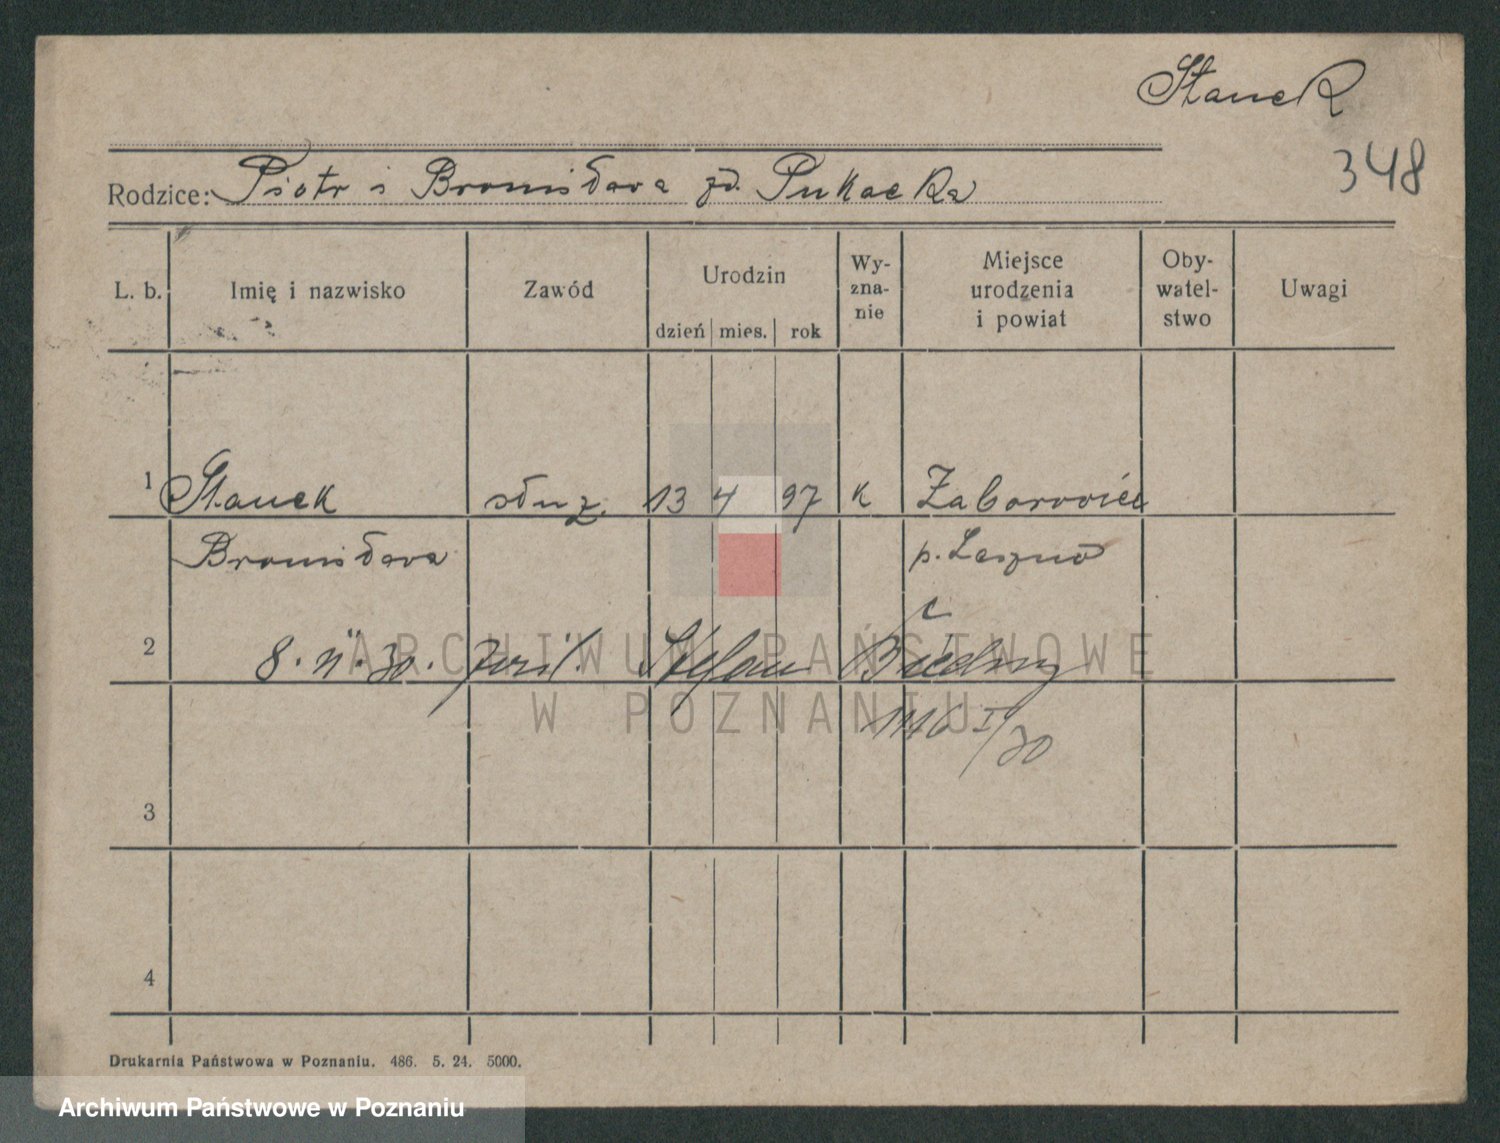 Stanek
348
Rodzice: Piotr i Bronisława zd. Pukacka
L. b.
Imię i nazwisko
Zawód
Urodzin
dzień mies. rok
Wy-
zna-
nie
Miejsce
urodzenia
i powiat
Oby-
watel-
stwo
Uwagi
1 Stanek służ. 13 4 97 k Zaborowiec
Bronisława p. Leszno
2 8. II. 30. Stefan
3
4
ARCHIWUM PAŃSTWOWE
W POZNANIU
Drukarnia Państwowa w Poznaniu. 486. 5. 24. 5000.
Archiwum Państwowe w Poznaniu